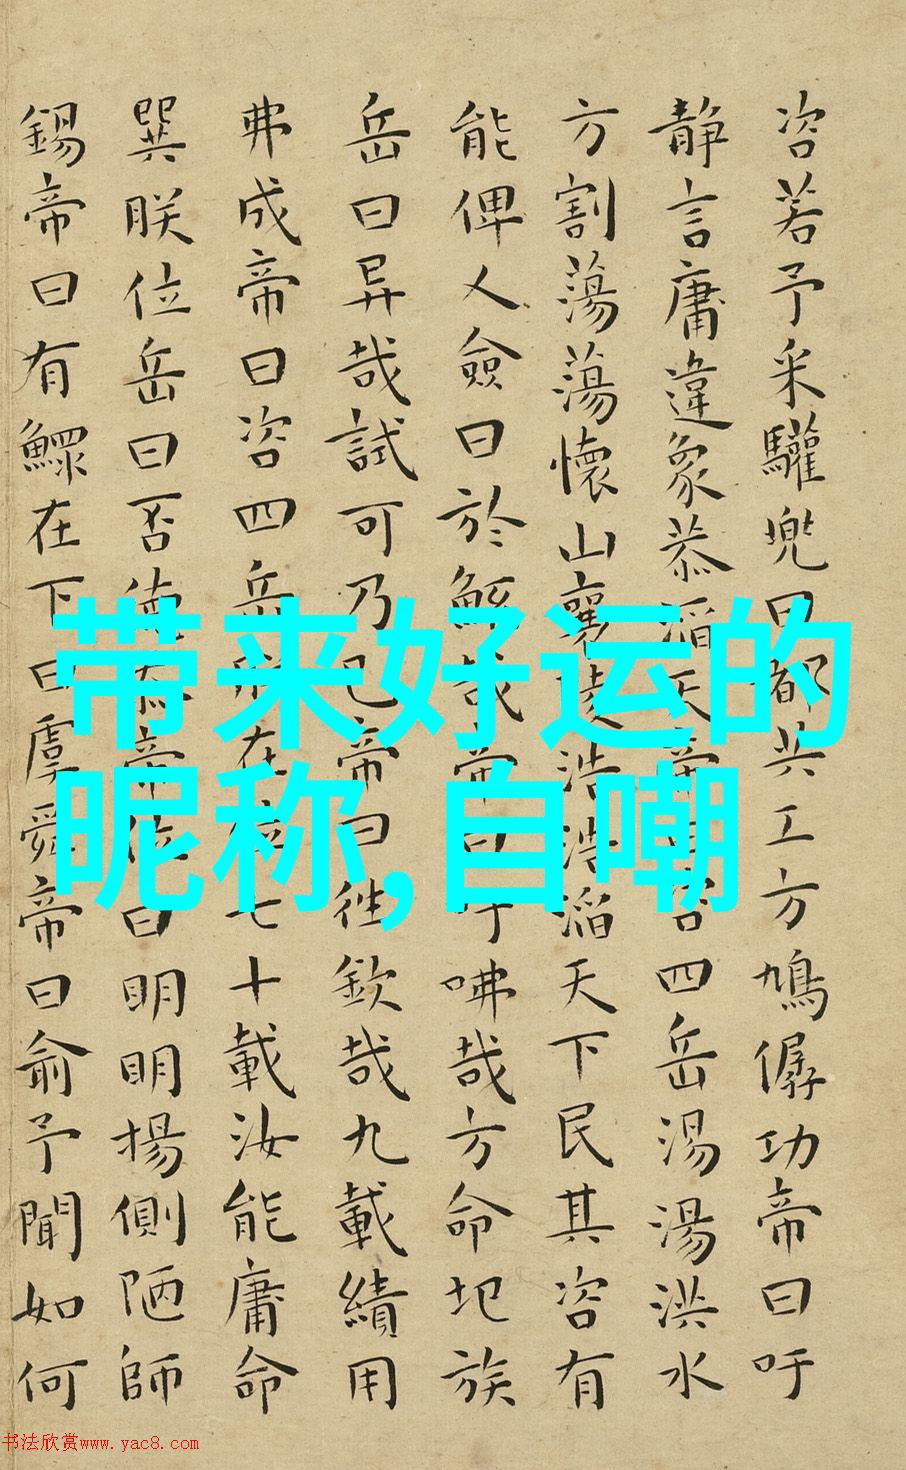 咨若予采驩兜曰都共工方鳩僝功帝曰吁
静言庸違象恭滔天帝曰咨四岳湯湯洪水
方割蕩蕩懷山襄陵浩浩滔天下民其咨有
能俾乂僉曰於鯀哉帝曰吁咈哉方命圮族
岳曰异哉試可乃已帝曰徃欽哉九載績用
弗成帝曰咨四岳朕在位七十載汝能庸命
巽朕位岳曰否德忝帝位曰明明揚側陋師
錫帝曰有鰥在下曰虞舜帝曰俞予聞如何
带来好运的
昵称,自嘲
书法欣赏www.yac8.com